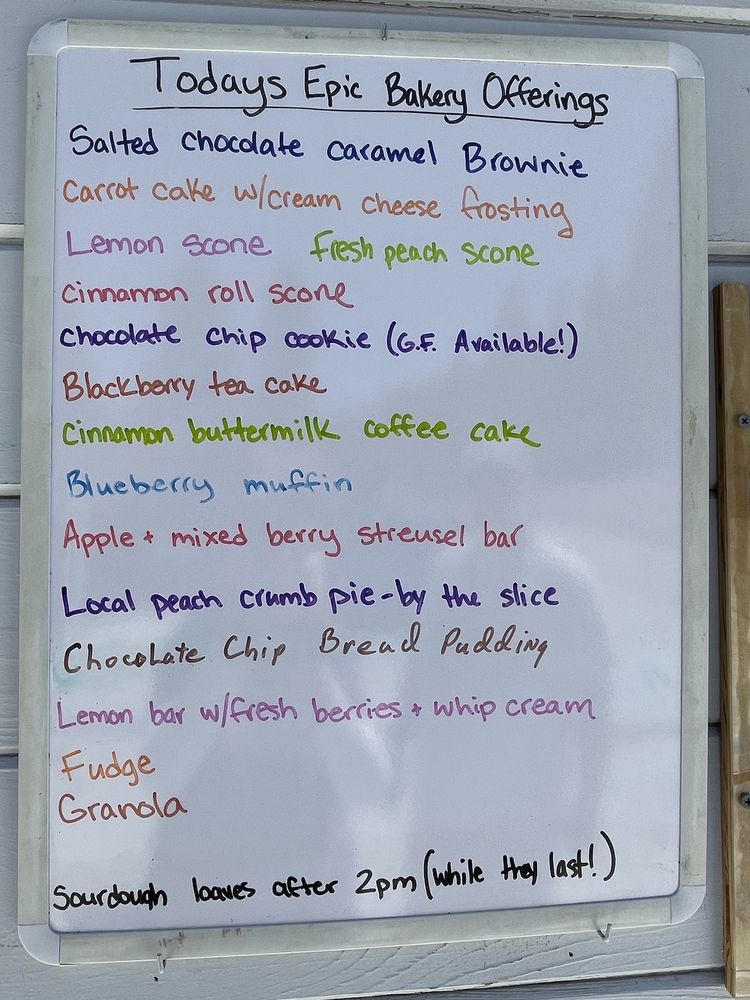 Todays Epic Bakery Offerings
Salted chocolate caramel Brownie
Carrot cake w/cream cheese frosting
Lemon scone fresh peach scone
Cinnamon roll scone
Chocolate chip cookie (G.F. Available!)
Blackberry tea cake
Cinnamon buttermilk coffee cake
Blueberry muffin
Apple + mixed berry streusel bar
Local peach crumb pie-by the slice
Chocolate Chip Bread Pudding
Lemon bar w/fresh berries + whip cream
Fudge
Granola
Sourdough loaves after 2pm (while they last!)